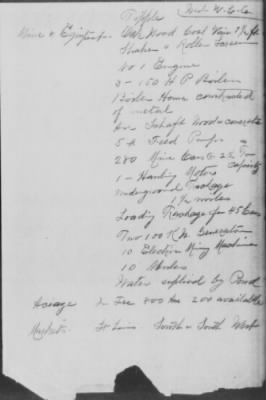 Tipple
Mine & Equipment Wood Coal Vein 7½ ft
Shaker & Roller Screen
No 1 Engine
3 - 150 H P Boilers
Boiler House constructed
of metal
Air Shaft Wood & concrete
5 Feed Pumps
200 Mine Cars 2½ Ton
capacity
1 - Hauling Motors
Underground Haulage
1½ miles
Loading Railage for 45 Cars
Two 100 K.W. Generators
10 Electric Ming Machines
10 Mules
Water supplied by Pond
Acreage In Fee 800 200 available
Markets St Louis South & South West